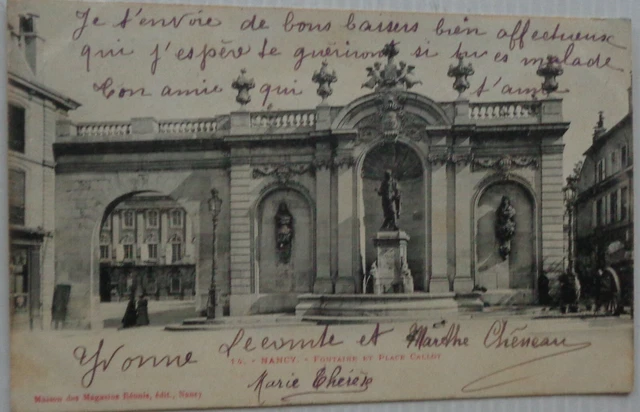 Je t'envoie de bons baisers bien affectueux
qui j'espère te guériront si tu es malade
Ton amie qui t'aime
Yvonne Lecomte et Marthe Chéneau
15. - NANCY. - FONTAINE ET PLACE CALLOT
Marie Thérèse
Maison des Magasins Réunis, édit., Nancy